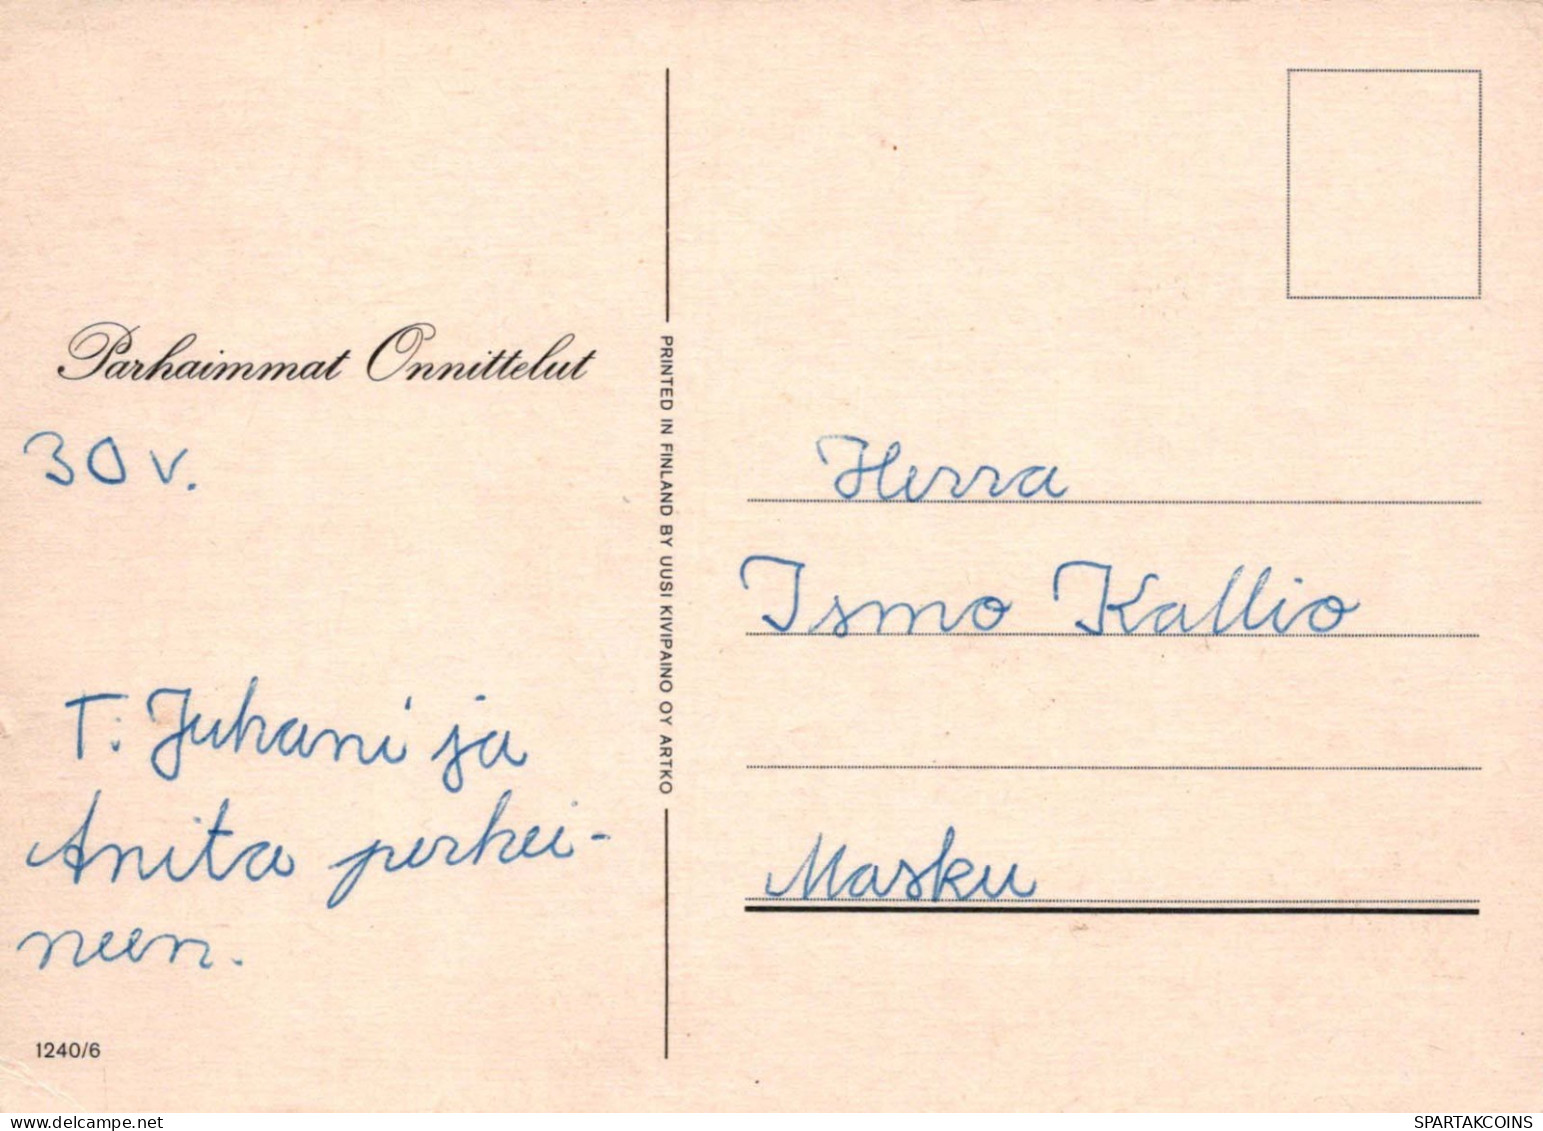 Parhaimmat Onnittelut
30 v.
T: Juhani ja
Anita perhei-
neen.
1240/6
PRINTED IN FINLAND BY UUSI KIVIPAINO OY ARTKO
Herra
Ismo Kallio
Masku
SPARTAKCOINS
delcampe.net